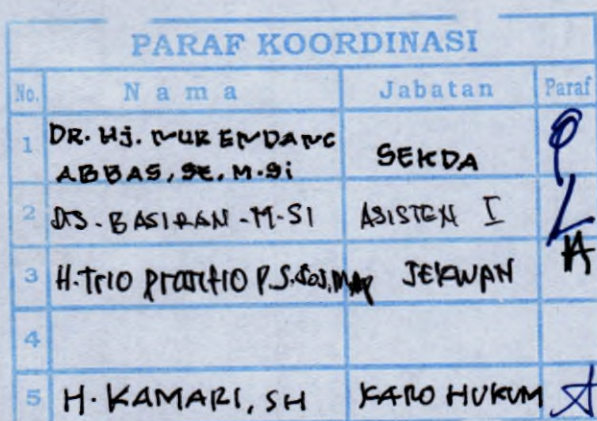 PARAF KOORDINASI
No. Nama Jabatan Paraf
1 DR. Hj. NUR ENDANG
ABBAS, SE, M.Si SEKDA
2 DS. BASIRAN - M-SI ASISTEN I
3 H. Trio P.S.Sos, MAp SEKWAN
4
5 H. KAMARI, SH KARO HUKUM